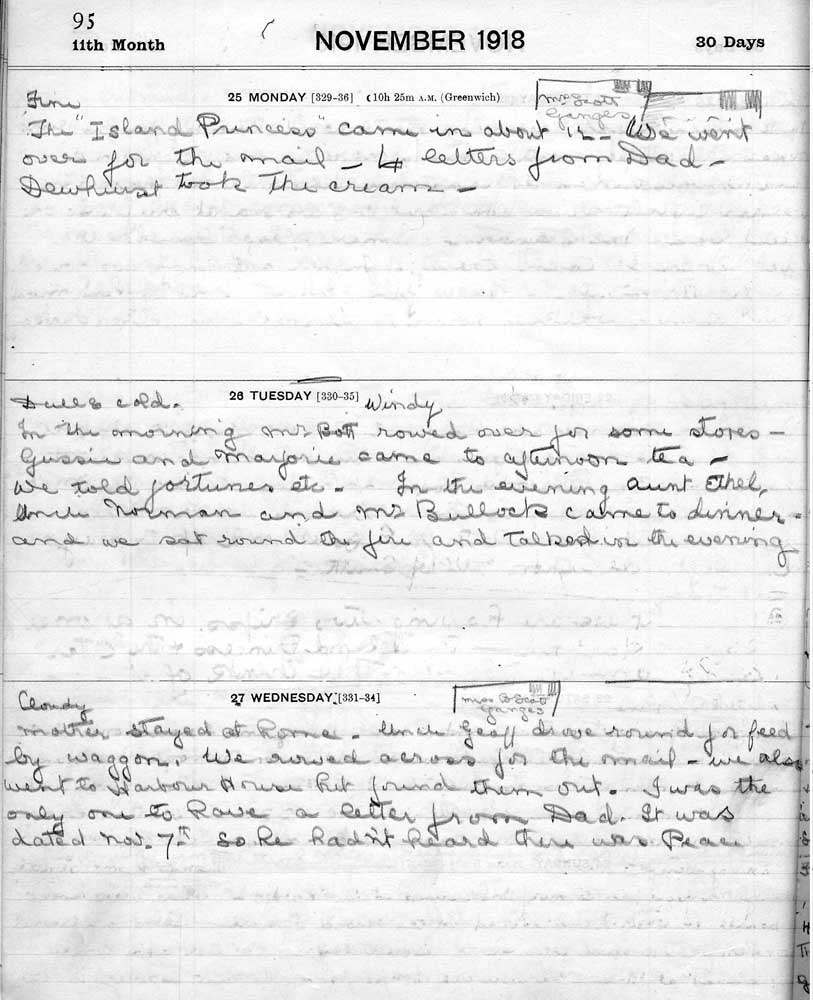 95
11th Month
NOVEMBER 1918
30 Days
Fine
25 MONDAY [329-36] ☾10h 25m A.M. (Greenwich)
Mrs Scott
Ganges
The "Island Princess" came in about 12 - We went
over for the mail - 4 letters from Dad -
Dewhurst took the cream -
Dull & cold.
26 TUESDAY [330-35]
Windy
In the morning Mr Bott rowed over for some stores -
Gussie and Marjorie came to afternoon tea -
We told fortunes etc - In the evening Aunt Ethel,
Uncle Norman and Mr Bullock came to dinner -
and we sat round the fire and talked in the evening
Cloudy
27 WEDNESDAY [331-34]
Ganges
Mother stayed at home - Uncle Geoff drove round for feed
by waggon. We rowed across for the mail - we also
went to Harbour House but found them out. I was the
only one to have a letter from Dad. It was
dated Nov. 7th so he hadn't heard there was Peace